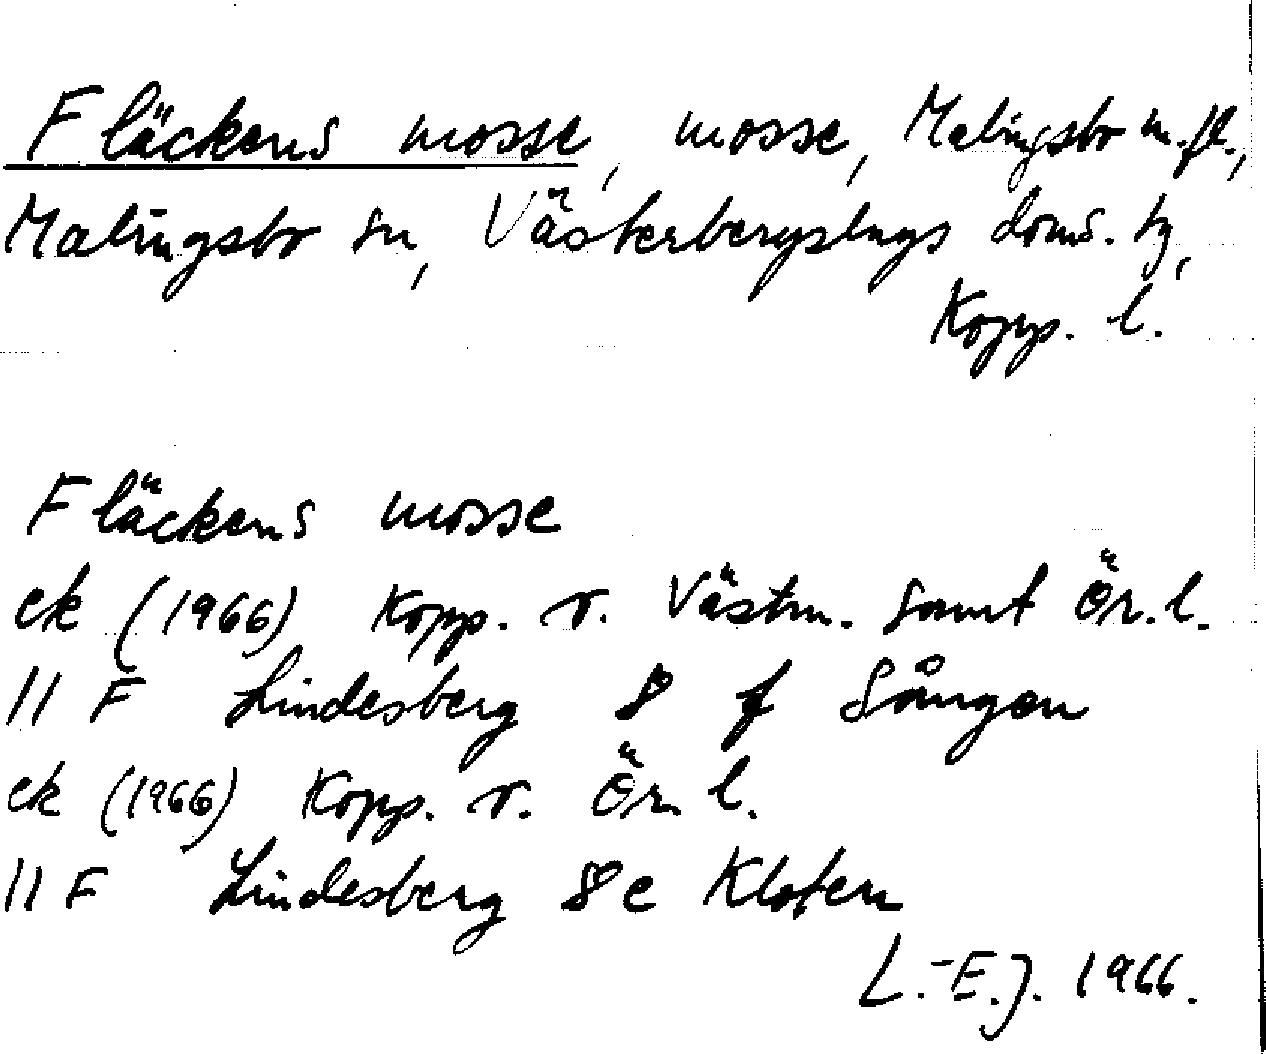 Fläckens mosse, mosse, Malingsbo m. fl.,
Malingsbo sn, Västerbergslags doms. tg,
Kopp. l.
Fläckens mosse
ek (1966) Kopp. v. Västm. samt Ör. l.
11 F Lindesberg 8 f Sången
ek (1966) Kopp. v. Ör. l.
11 F Lindesberg 8 e Kloten
L.-E.J. 1966.